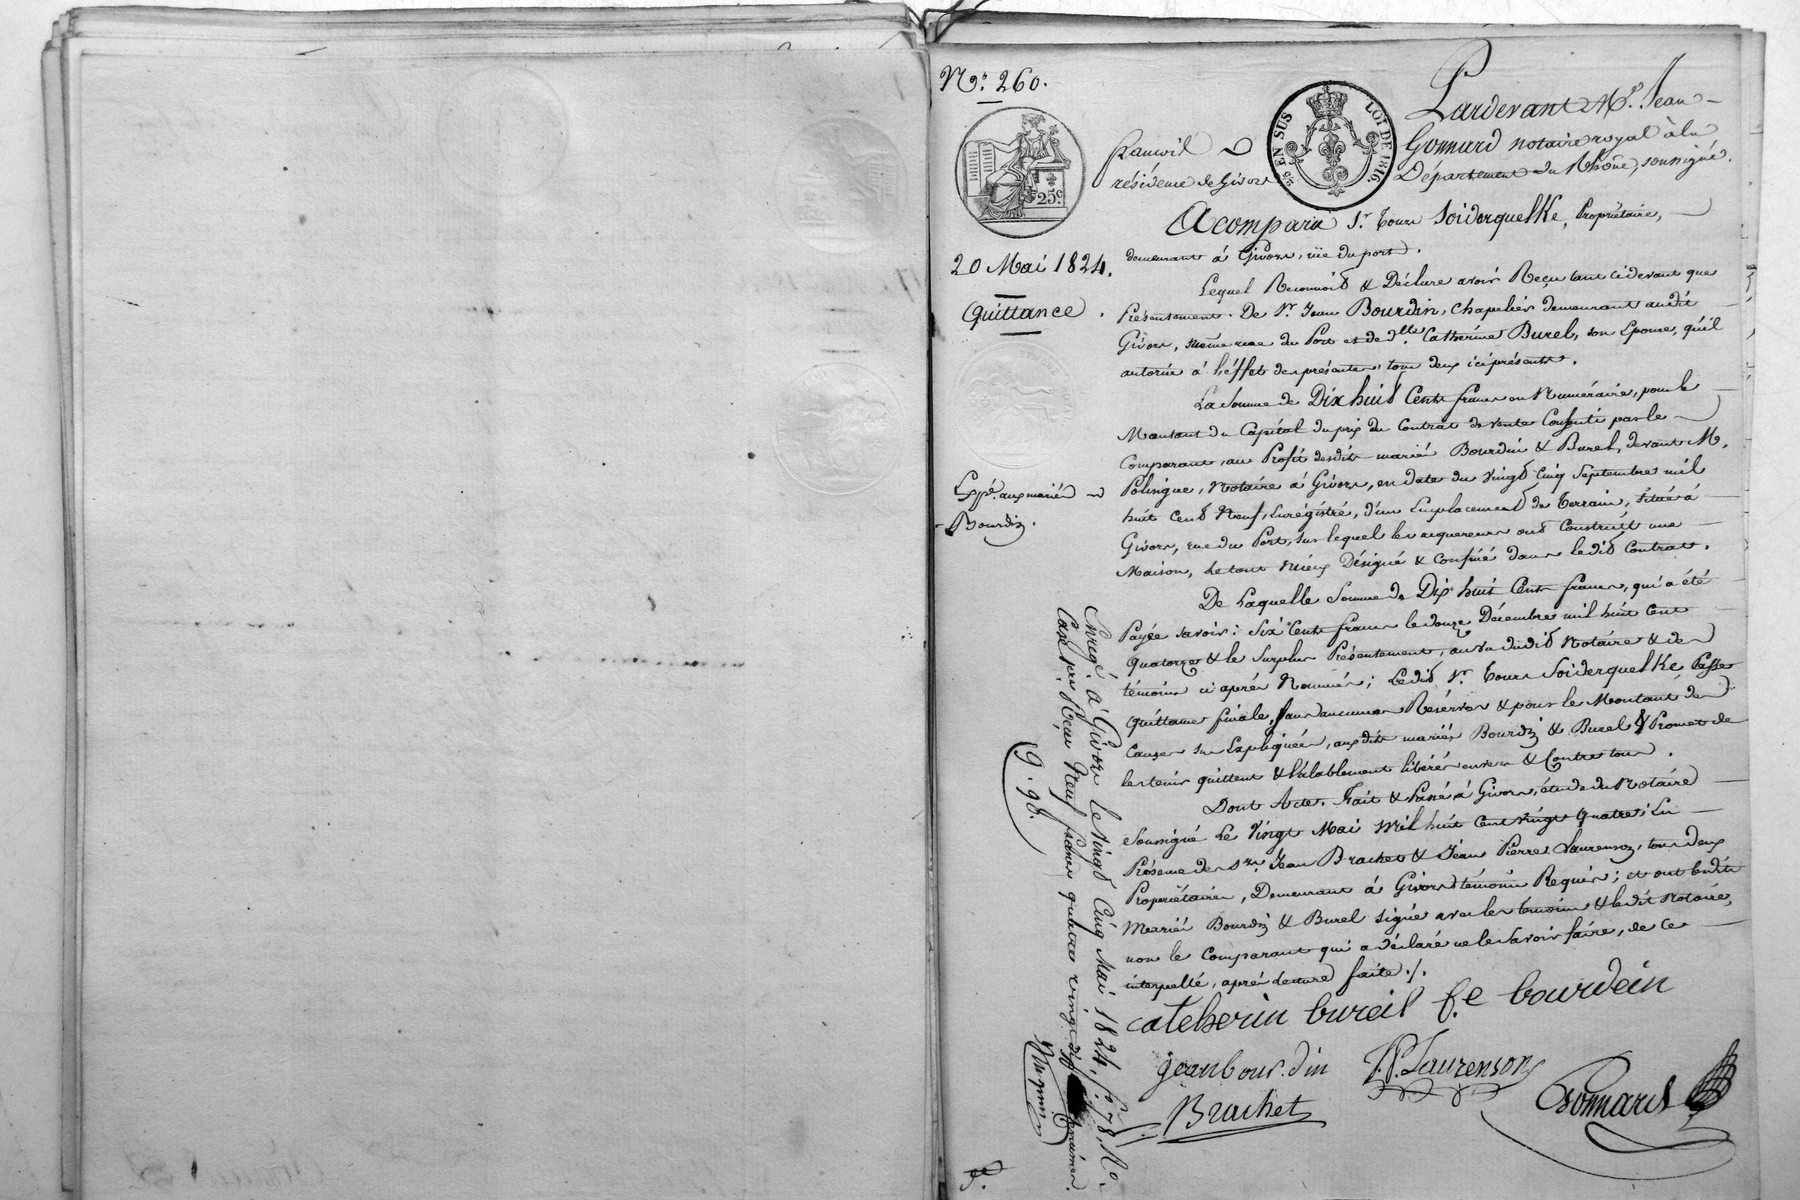 N.° 260.
25 EN SUS
LOI DE 1816.
25c
Pardevant Me. Jean
Gonnard notaire royal à la
résidence de Givors Département du Rhône, soussigné.
A comparu Sr. Tours Soiderquelke, Propriétaire,
demeurant à Givors, rüe du port.
20 Mai 1824.
Quittance.
Lequel Reconnoit & Déclare avoir Reçu tant cidevant que
Présentement. De Sr. Jean Bourdin, Chapelier demeurant audit
Givors, même rue du Port et de dlle. Catherine Burel, son Epouse, qu'il
autorise à l'éffet des présentes, tous deux ici présents.
La Somme de Dix huit Cents francs en Numéraire, pour le
Montant du Capital du prix du Contrat de vente Consenti par le
Comparant, au Profit desdits mariés Bourdin & Burel, devant M.
Expé. aux mariés
Bourdin.
Polingue, Notaire à Givors, en date du vingt Cinq Septembre mil
huit Cent Neuf, Enrégistré, d'un Emplacement de Terrain, situé à
Givors, rue du Port, sur lequel les acquereurs ont Construit une
Maison, le tout mieux Désigné & Confiné dans ledit Contrat.
De Laquelle Somme de Dix huit Cents francs, qui a été
Payée savoir: Six Cents francs le douze Décembre mil huit Cent
Quatorze & le Surplus Présentement, au vu dudit Notaire & des
témoins ci après Nommés; Ledit Sr. Tours Soiderquelke Passe
Quittance finale, sans aucunes Réserves & pour le Montant des
Causes sus Expliquées, auxdits mariés Bourdin & Burel & Promet de
les tenir quittent & Valablement libérés envers & Contre tous.
Dont Acte. Fait & Passé à Givors, étude du Notaire
Soussigné Le Vingt Mai Mil huit Cent vingt Quatre; En
Présence de Srs. Jean Brachet & Jean Pierre Laurenson, tous deux
Propriétaires, Demeurant à Givors témoins Requis; et ont lesdits
Mariés Bourdin & Burel signé avec les témoins & ledit Notaire,
non le Comparant qui a déclaré ne le Savoir faire, de ce
interpellé, après lecture faite./.
catcherin bureil fe bourdein
jean bour.din
J.P. Laurenson
Brachet
Gonnard
Enregé. à Givors le Vingt Cinq Mai 1824, fo. 78, Ro.
Case 1ere Reçu Neuf francs quatre vingt dix
9.98.